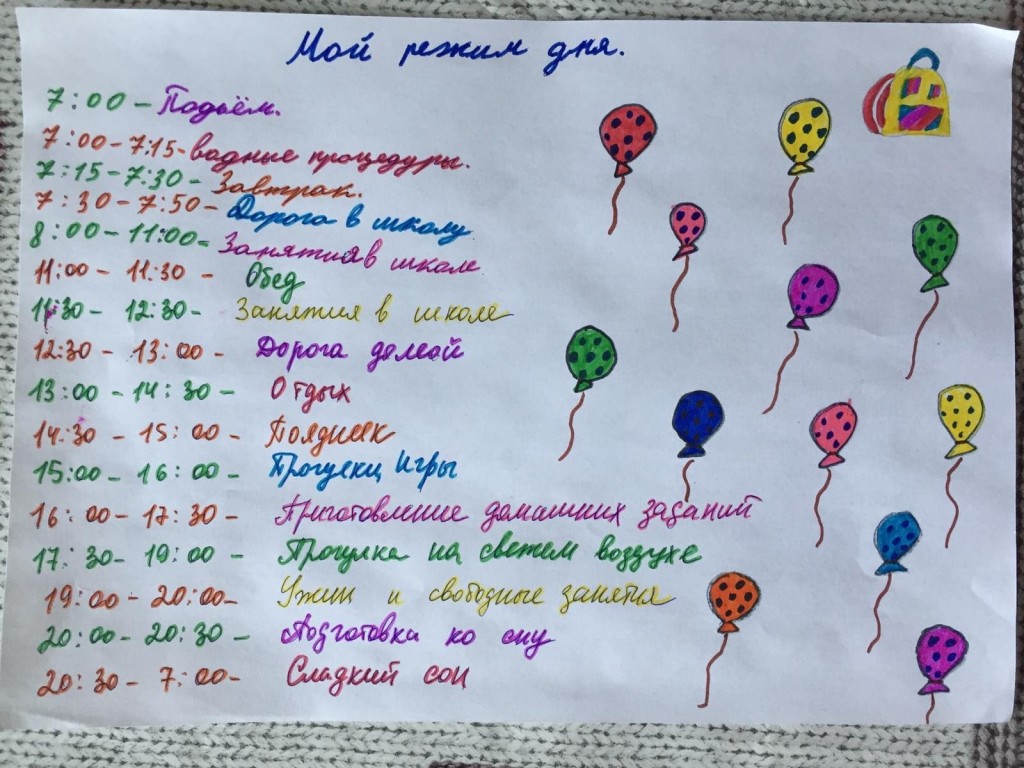 Мой режим дня.
7:00 - Подъём.
7:00-7:15-водные процедуры.
7:15-7:30- Завтрак.
7:30-7:50- Дорога в школу
8:00-11:00- Занятия в школе
11:00 - 11:30 - Обед
11:30- 12:30- Занятия в школе
12:30 - 13:00 - Дорога домой
13:00 - 14:30 - Отдых
14:30 - 15:00 - Полдник
15:00 - 16:00 - Прогулки Игры
16:00 - 17:30 - Приготовление домашних заданий
17:30 - 19:00 - Прогулка на свежем воздухе
19:00 - 20:00- Ужин и свободные занятия
20:00 - 20:30 - Подготовка ко сну
20:30 - 7:00- Сладкий сон